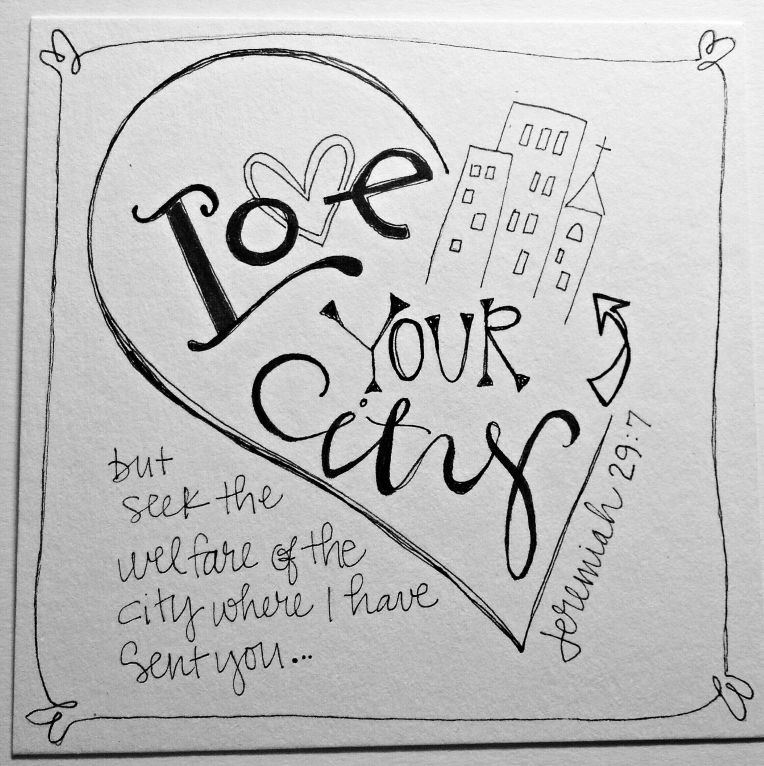 Love
YOUR
City
but
seek the
welfare of the
city where I have
sent you...
Jeremiah 29:7